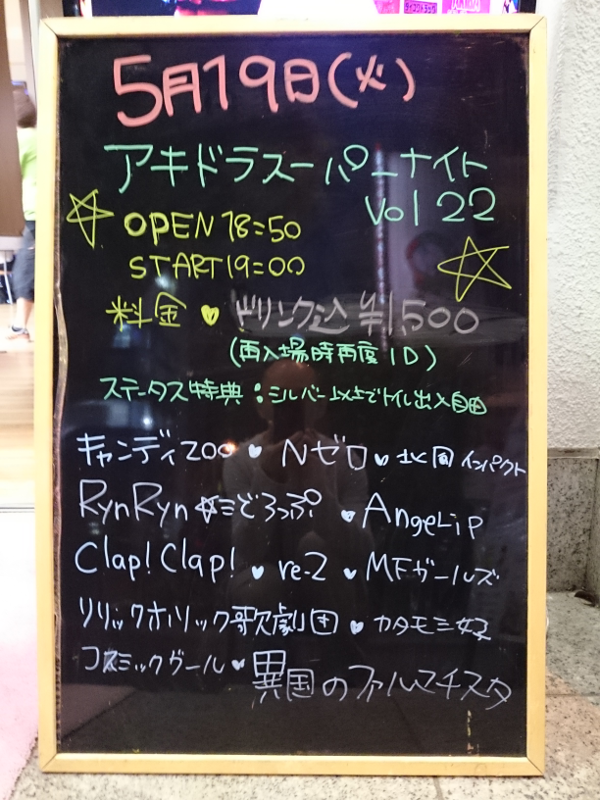 5月19日(火)
アキドラスーパーナイト
Vol 22
OPEN 18=50
START 19=00
料金 ♥ ドリンク込 ¥1,500
(再入場時再度1D)
ステータス特典:シルバー以上でトイレ出入自由
キャンディzoo ♥ Nゼロ ♥ 北国インパクト
RynRyn☆ミどろっぷ ♥ AngeLip
Clap!Clap! ♥ re-2 ♥ MFガールズ
リリックホリック歌劇団 ♥ カタモミ女子
コズミックガール ♥ 異国のファルマチスタ